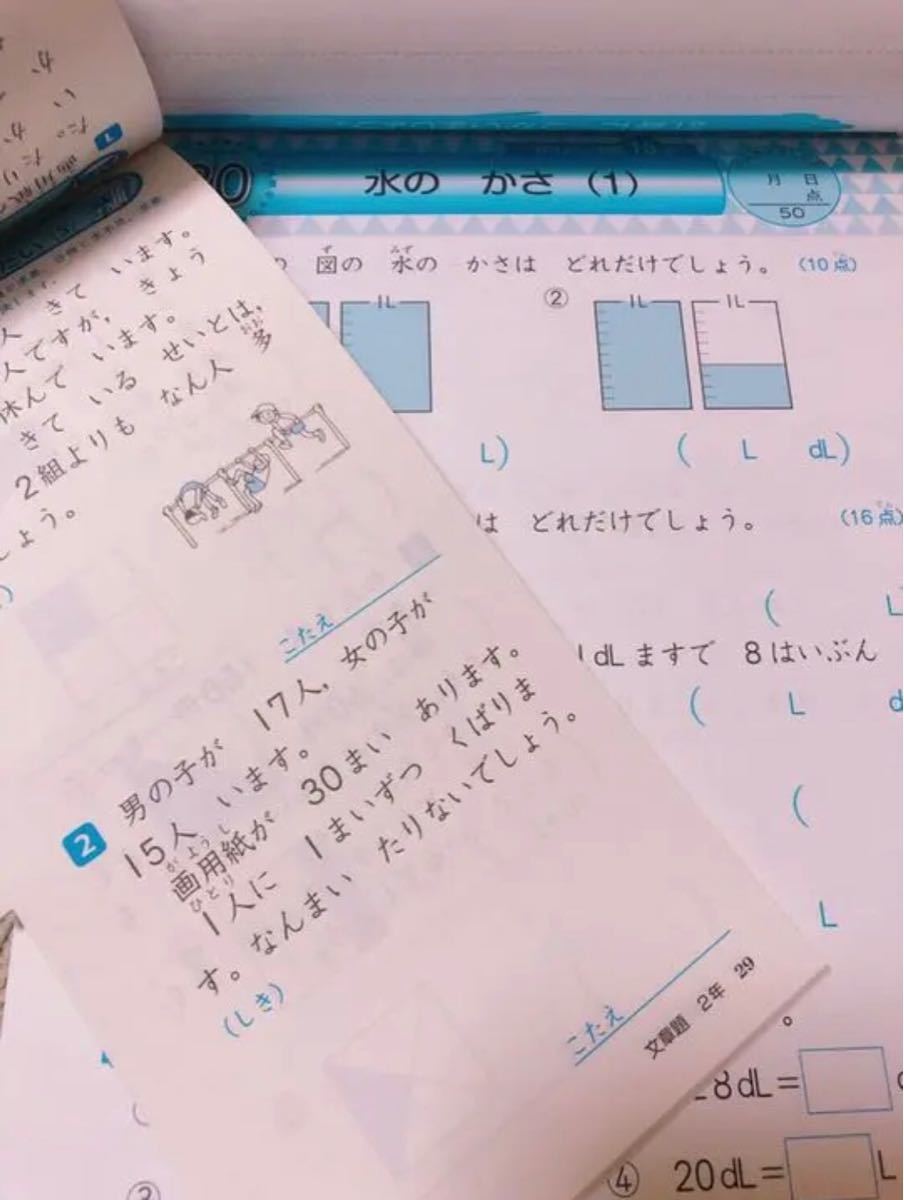 水の かさ (1)
月 日
点
50
図の 水の かさは どれだけでしょう。 (10点)
ず みず
②
1L
1L
1L
L)
( L dL)
は どれだけでしょう。 (16点)
( L
1dLますで 8はいぶん
( L
(
L
8dL=
④ 20dL= L
人 きて います。
人ですが, きょう
休んで います。
きて いる せいとは,
2組よりも なん人 多
おお
しょう。
こたえ
2 男の子が 17人, 女の子が
15人 います。
がようし
画用紙が 30まい あります。
ひとり
1人に 1まいずつ くばりま
す。なんまい たりないでしょう。
(しき)
こたえ
文章題 2年 29